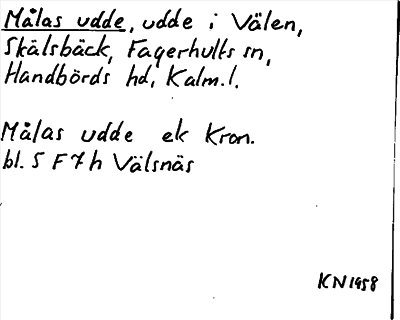 Målas udde, udde i Välen,
Skälsbäck, Fagerhults sn,
Handbörds hd, Kalm. l.
Målas udde ek Kron.
bl. 5 F 7 h Välsnäs
KN 1958